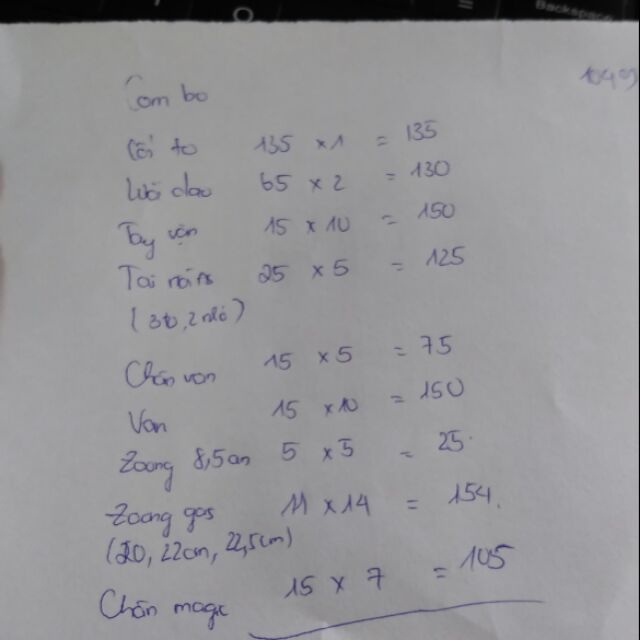 Combo
Cối to 135 x 1 = 135
Lưỡi dao 65 x 2 = 130
Tay vặn 15 x 10 = 150
Tai nồi 25 x 5 = 125
(3to, 2 nhỏ)
Chân van 15 x 5 = 75
Van 15 x 10 = 150
Zoong 8,5cm 5 x 5 = 25
Zoong gas 11 x 14 = 154
(20, 22cm, 22,5cm)
Chân magic 15 x 7 = 105